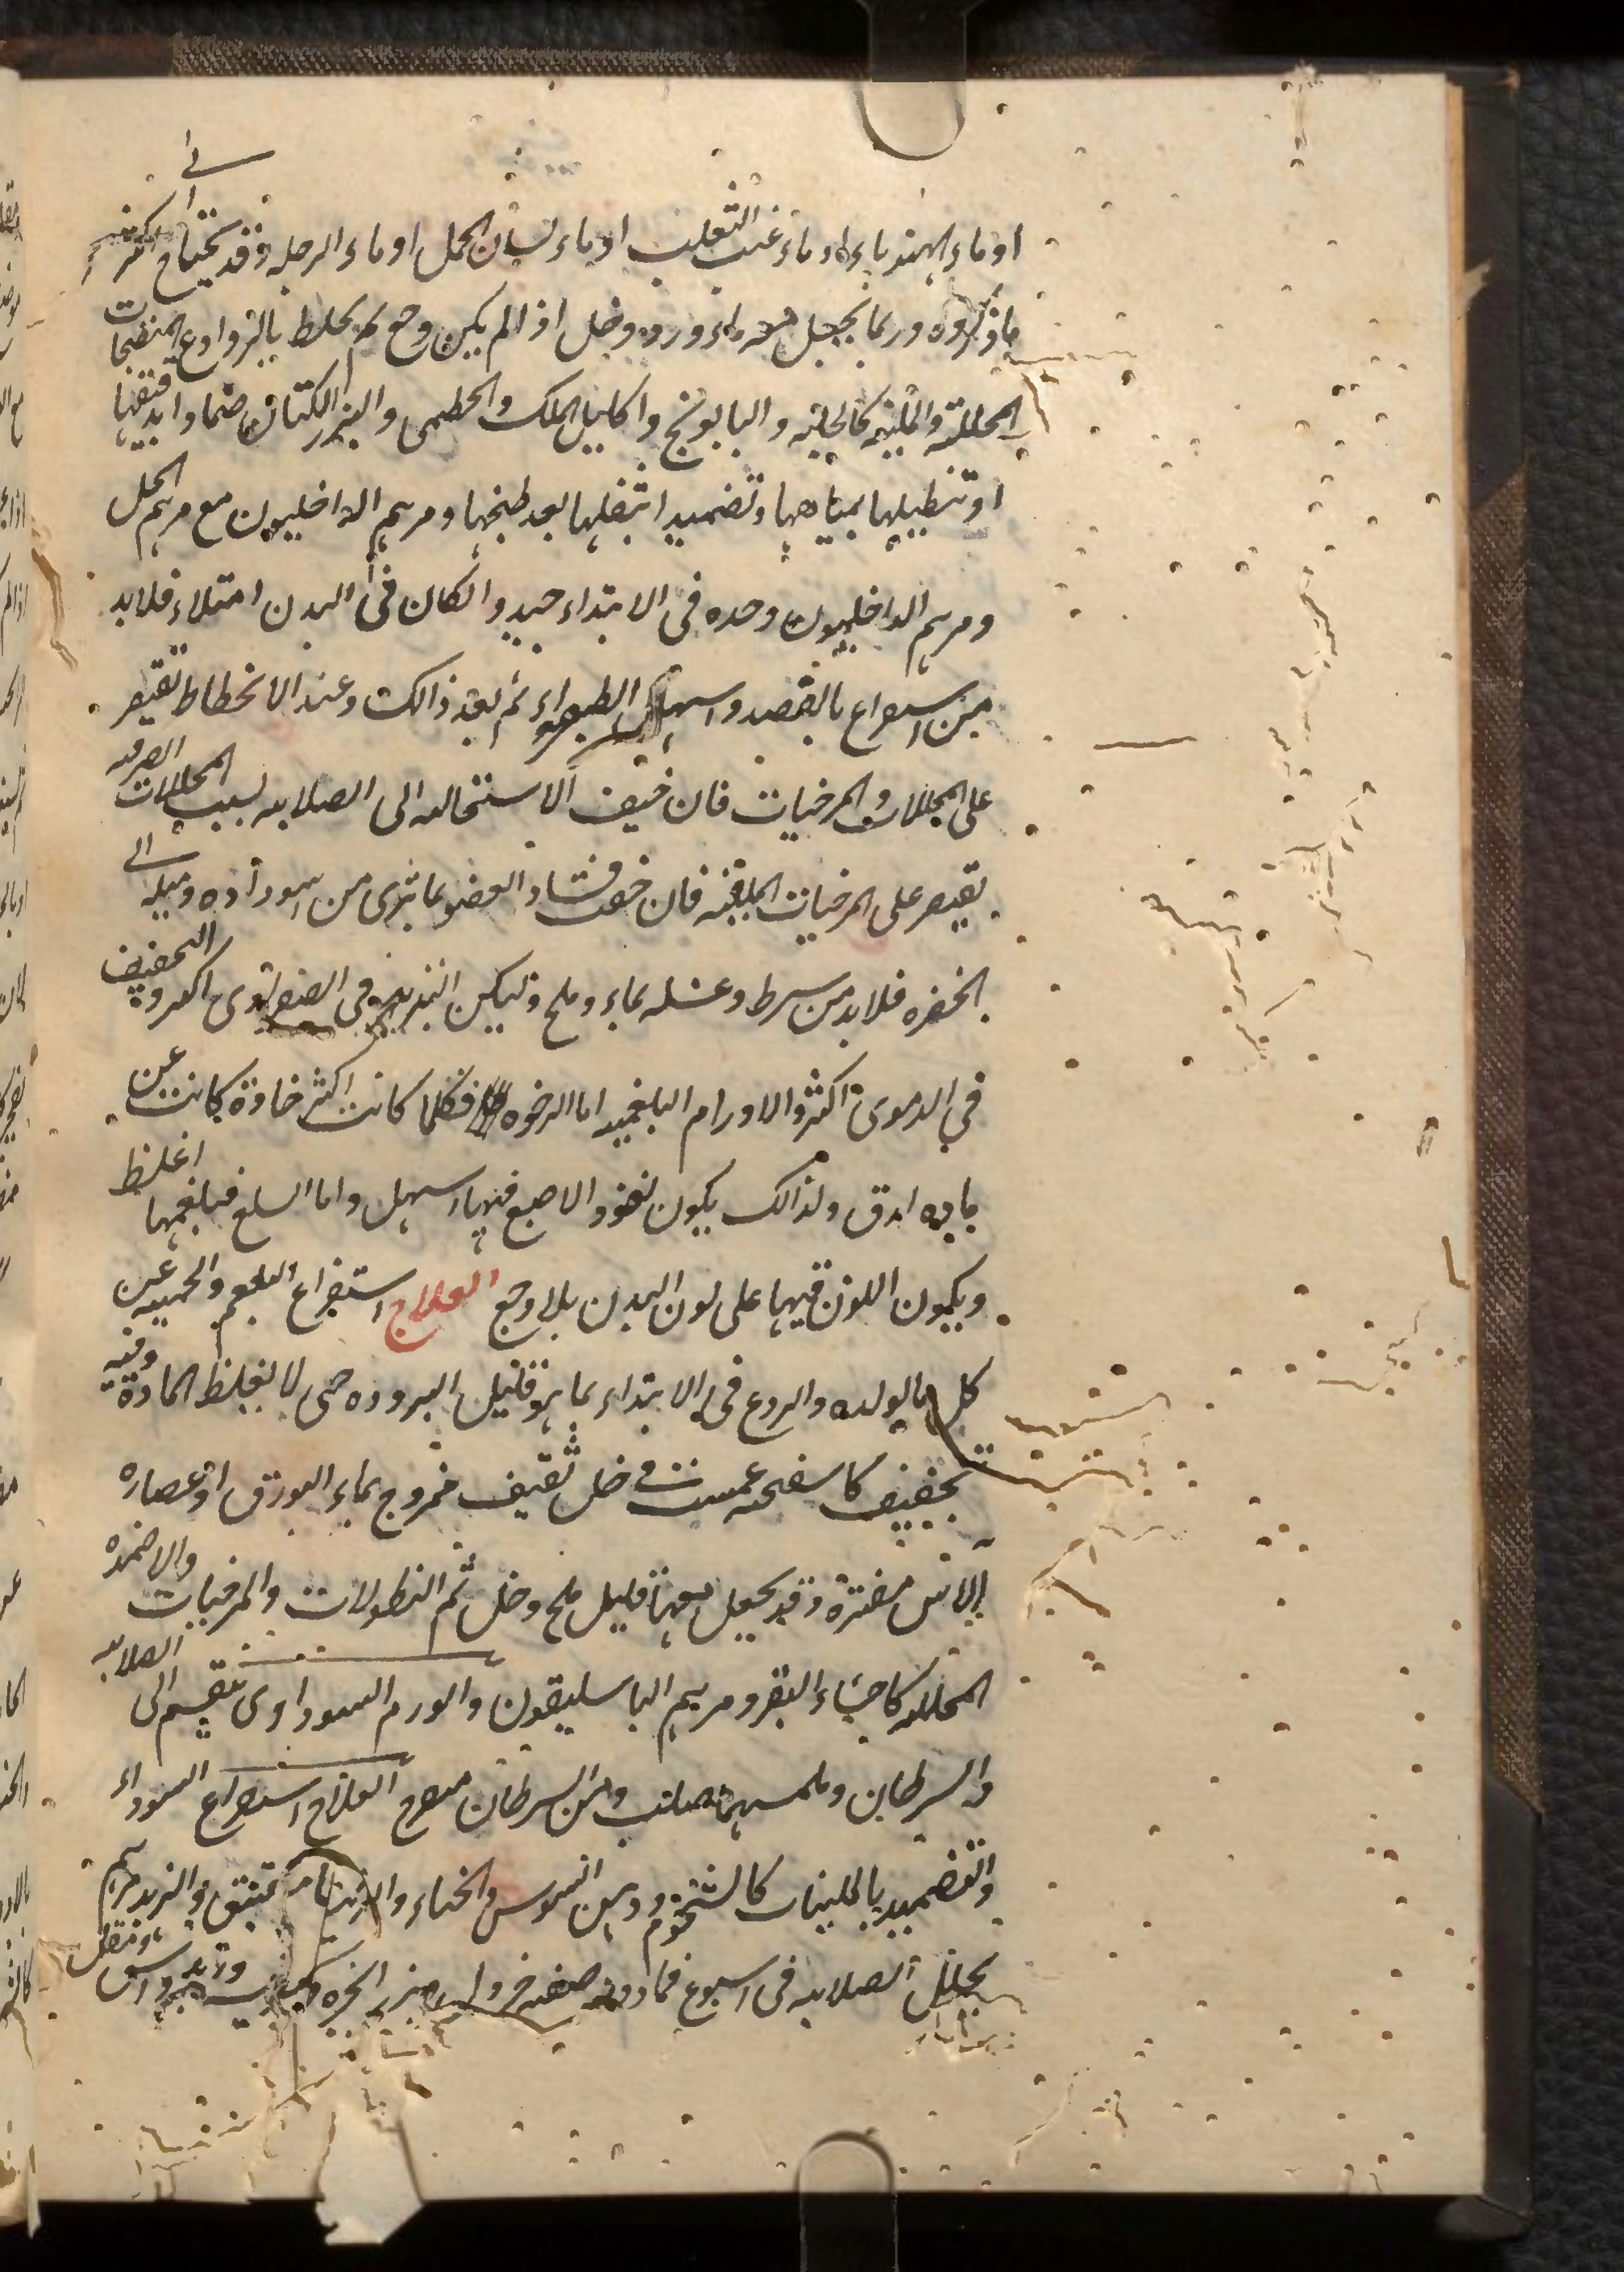 او ماء الهندباء او ماء عنب الثعلب او ماء لسان الحمل او ماء الرجله وقد يحتاج الى اكثر
ماذكروه وربما يجعل معه ماورد وخل اذا لم يكن وجع ثم يخلط بالروادع المنضجات
المحللة والملينه كالحلبه والبابونج واكليل الملك والخطمى والبزر الكتان ضمادا بدقيقها
او تنطيلها بمياهها وتضميدا بثفلها بعد طبخها ومرهم الداخليون مع مرهم الخل
ومرهم الداخليون وحده فى الابتداء جيد وان كان فى البدن امتلاء فلابد
من استفراغ بالفصد واسهال الصفراء ثم بعد ذالك وعند الانحطاط تقتصر
على المحللات والمرخيات فان خيف الاستحاله الى الصلابه بسبب المحللات الصرفه
يقتصر على المرخيات الملينه فان خفت فساد العضو بما ترى من اسوداده وميله الى
الخضره فلابد من شرط وغسله بماء وملح وليكن التبريد فى الصفراوى اكثر والتجفيف
في الدموى اكثر والاورام البلغميه اما الرخوه فكلما كانت اكثر رخاوة كانت عن
ماده ادق ولذالك يكون نفوذ الاصبع فيها اسهل واما السلع فبلغمها اغلظ
ويكون اللون فيها على لون البدن بلا وجع العلاج استفراغ البلغم والحميه عن
كل مايولده والردع فى الابتداء بما هو قليل البروده حتى لا يغلظ المادة وفيه
تجفيف كاسفنجه غمست فى خل ثقيف ممزوج بماء البورق او عصاره
الاس مفترة وقد يجعل معها قليل ملح وخل ثم النطولات والمرخيات والاضمده
المحلله كاخثاء البقر ومرهم الباسليقون والورم السوداوى ينقسم الى الصلابه
والسرطان وملمسهما صلب ومن السرطان متقرح العلاج استفراغ السوداء
والتضميد بالملينات كالشحوم ودهن السوسن والحناء والزيت
يحلل الصلابه فى اسبوع فما دونه صفته خردل وبزر الانجره وكبريت وزبد